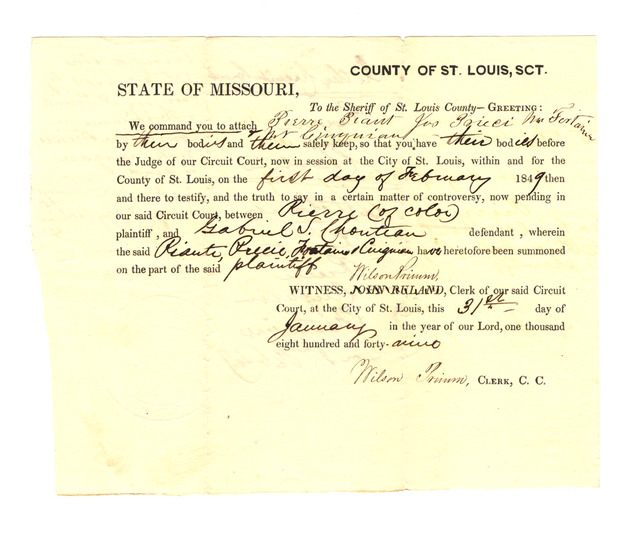 COUNTY OF ST. LOUIS, SCT.
STATE OF MISSOURI,
To the Sheriff of St. Louis County—GREETING:
We command you to attach Pierre Piant Jos Pricci Mr Fontaine
Bt Cingnian
by their bodies and them safely keep, so that you have their bodies before
the Judge of our Circuit Court, now in session at the City of St. Louis, within and for the
County of St. Louis, on the first day of February 1849 then
and there to testify, and the truth to say in a certain matter of controversy, now pending in
our said Circuit Court, between Pierre (of color)
plaintiff, and Gabriel S. Chouteau defendant, wherein
the said Piante, Precie, Fontaine & Cingnian have heretofore been summoned
on the part of the said plaintiff
Wilson Primm,
WITNESS, JOHN RULAND, Clerk of our said Circuit
Court, at the City of St. Louis, this 31st day of
January in the year of our Lord, one thousand
eight hundred and forty-nine
Wilson Primm, CLERK, C. C.